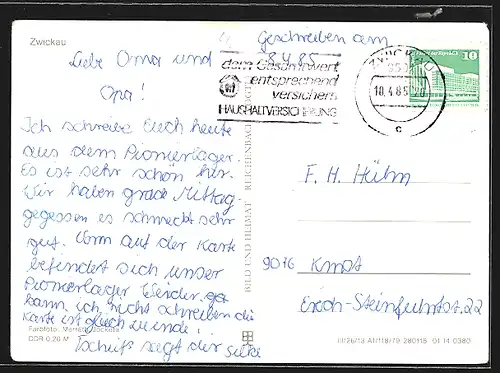 Zwickau
Geschreiben am
8.4.85
Liebe Oma und
Opa!
Ich schreibe Euch heute
aus dem Pionierlager.
Es ist sehr schön hir.
Wir haben grade Mittag
gegessen es schmeckt sehr
gut. Vorn auf der Karte
befindet sich unser
Pionierlager leider
kann ich nicht schreiben die
Karte ist gleich zu ende!
Tschüß sagt der Silke
dem Gesamtwert
entsprechend
versichern
HAUSHALTVERSICHERUNG
ZWICKAU
10.4.85
c
10
F. H. Hühn
9016 KMST
Erich-Steinfurtst. 22
BILD UND HEIMAT REICHENBACH
Farbfoto:
DDR 0,20 M
III/26/13 A1/118/79 280118 01 14 0380